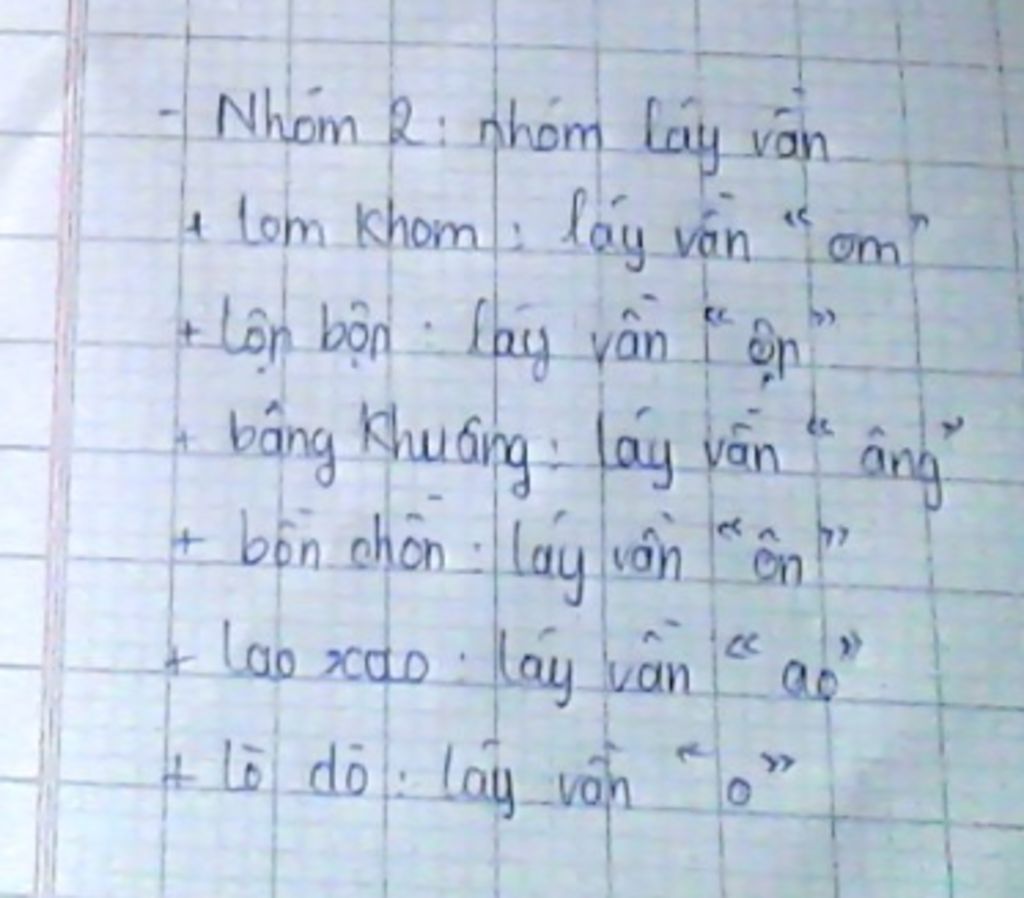 - Nhóm 2: nhóm láy vần
+ lom khom: láy vần " om "
+ lộn bộn: láy vần " ộn "
+ bâng khuâng: láy vần " âng "
+ bồn chồn: láy vần " ôn "
+ lao xao: láy vần " ao "
+ lò dò: láy vần " o "